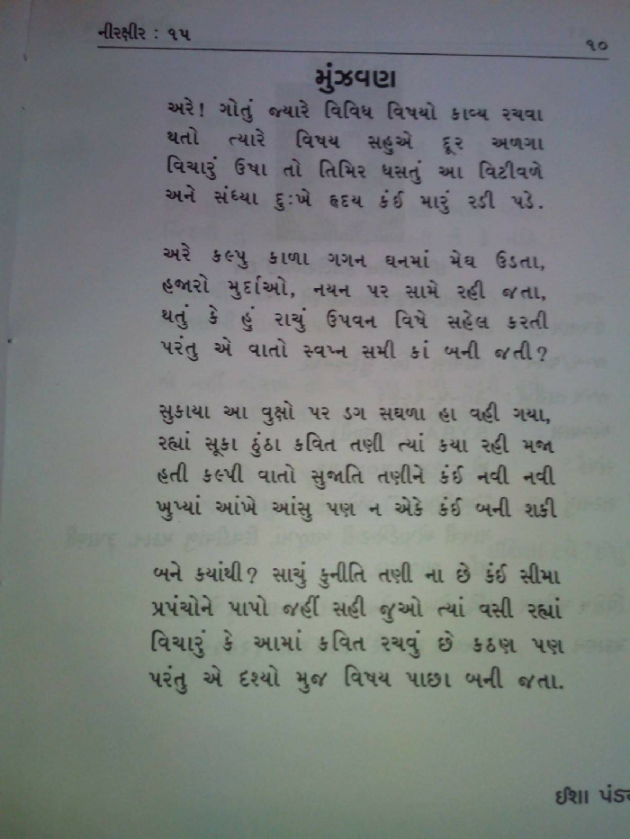 નીરક્ષીર : ૧૫
૧૦
મુંઝવણ
અરે! ગોતું જ્યારે વિવિધ વિષયો કાવ્ય રચવા
થતો ત્યારે વિષય સહુએ દૂર અળગા
વિચારું ઉષા તો તિમિર ધસતું આ વિટીવળે
અને સંધ્યા દુઃખે હૃદય કંઈ મારું રડી પડે.
અરે કલ્પુ કાળા ગગન ઘનમાં મેઘ ઉડતા,
હજારો મુર્દાઓ, નયન પર સામે રહી જતા,
થતું કે હું રાચું ઉપવન વિષે સહેલ કરતી
પરંતુ એ વાતો સ્વપ્ન સમી કાં બની જતી?
સુકાયા આ વુક્ષો પર ડગ સઘળા હા વહી ગયા,
રહ્યાં સૂકા ઠુંઠા કવિત તણી ત્યાં કયા રહી મજા
હતી કલ્પી વાતો સુજાતિ તણીને કંઈ નવી નવી
ખુપ્યાં આંખે આંસુ પણ ન એકે કંઈ બની શકી
બને કયાંથી? સાચું કુનીતિ તણી ના છે કંઈ સીમા
પ્રપંચોને પાપો જહીં સહી જુઓ ત્યાં વસી રહ્યાં
વિચારું કે આમાં કવિત રચવું છે કઠણ પણ
પરંતુ એ દશ્યો મુજ વિષય પાછા બની જતા.
ઈશા